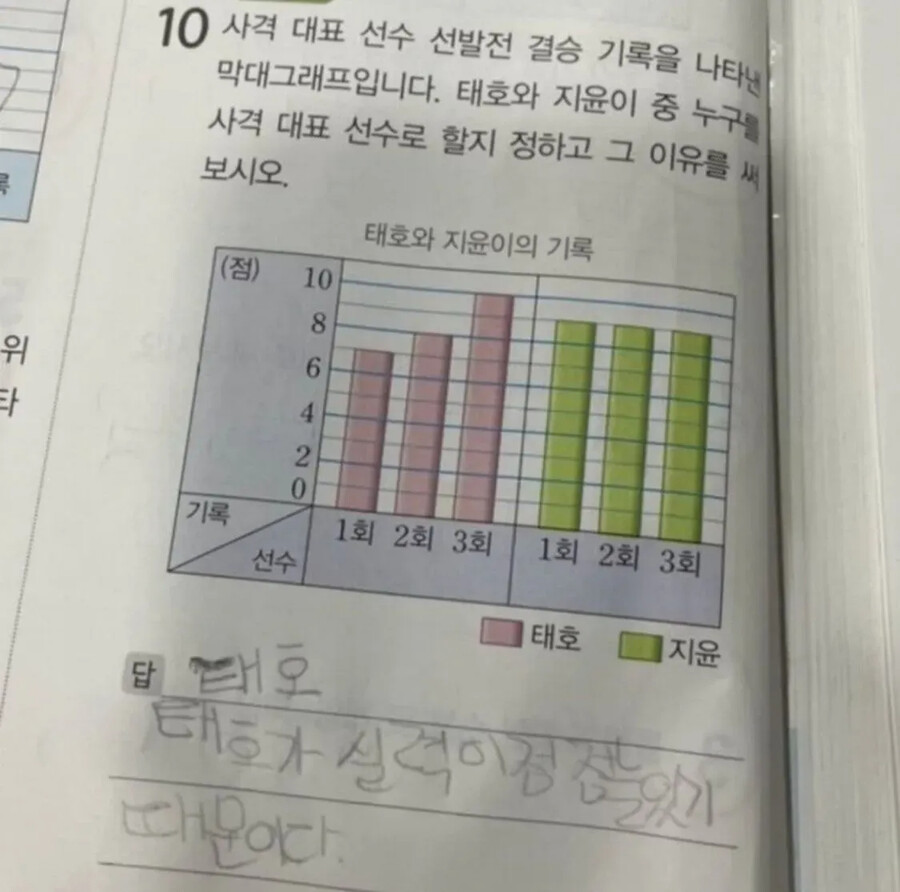 10 사격 대표 선수 선발전 결승 기록을 나타낸
막대그래프입니다. 태호와 지윤이 중 누구를
사격 대표 선수로 할지 정하고 그 이유를 써
보시오.
태호와 지윤이의 기록
(점)
10
8
6
4
2
0
기록
선수
1회 2회 3회 1회 2회 3회
태호 지윤
답 태호
태호가 실력이 점점 늘었기
때문이다.
위
타